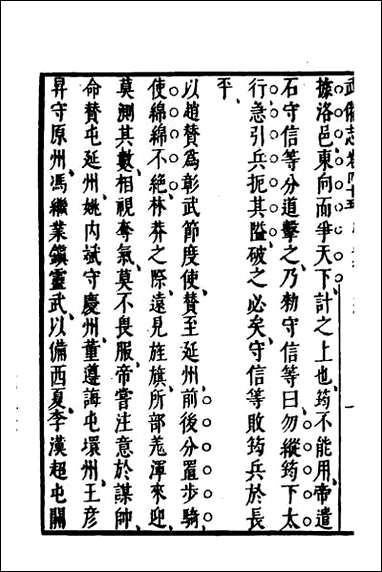 武備志卷四十五
據洛邑東向而爭天下計之上也筠不能用帝遣
石守信等分道擊之乃勅守信等曰勿縱筠下太
行急引兵扼其隘破之必矣守信等敗筠兵於長
平
以趙贊爲彰武節度使贊至延州前後分置步騎
使綿綿不絶林莽之際遠見旌旗所部羗渾來迎
莫測其數相視奪氣莫不畏服帝嘗注意於謀帥
命贊屯延州姚内斌守慶州董遵誨屯環州王彦
昇守原州馮繼業鎭靈武以備西夏李漢超屯關